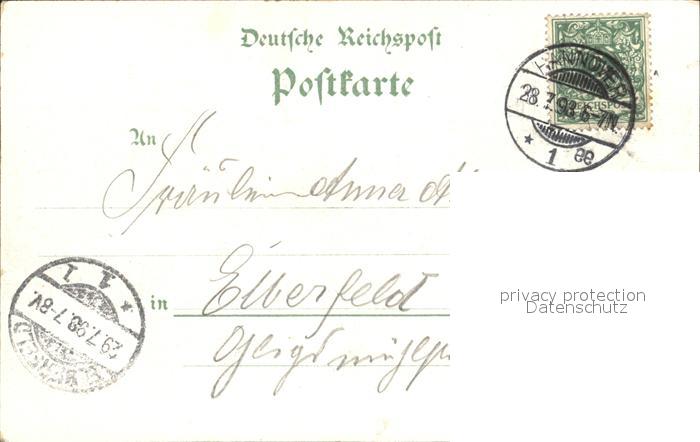 Deutsche Reichspost
Postkarte
HANNOVER
28.7.98.6-7N.
* 1 ee
REICHSPOST
An
Fräulein Anna
in Elberfeld
privacy protection
Datenschutz
* 1 1
29.7.98.7-8V.